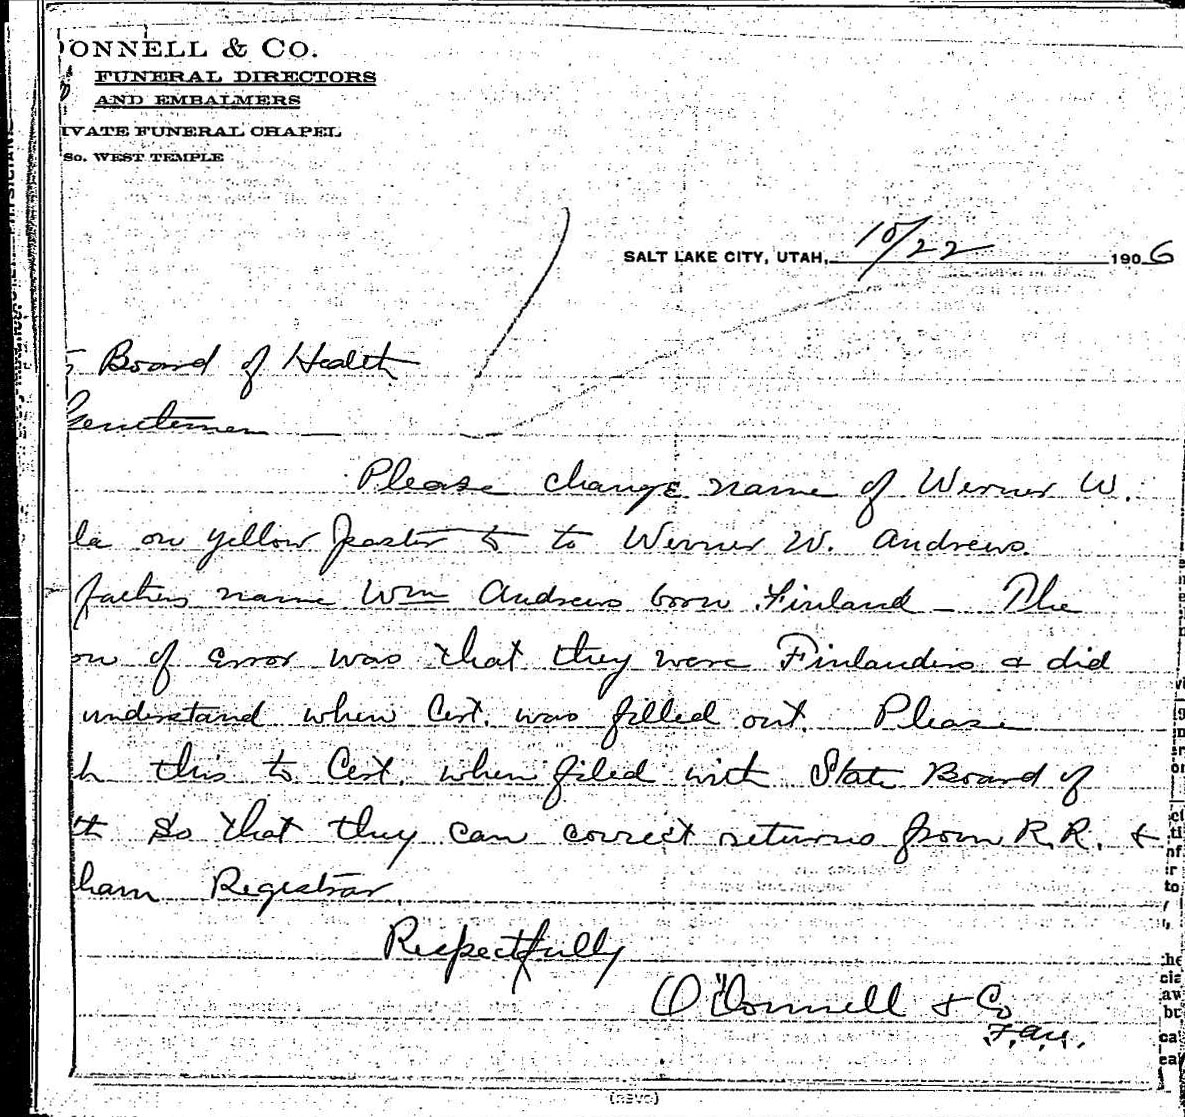 ONNELL & CO.
FUNERAL DIRECTORS
AND EMBALMERS
IVATE FUNERAL CHAPEL
So. WEST TEMPLE
SALT LAKE CITY, UTAH, 10/22 1906
Board of Health
Gentlemen
Please change name of Werner W.
la on yellow paster to Werner W. Andrews.
fathers name Wm Andrews born Finland - The
on of error was that they were Finlanders & did
understand when Cert. was filled out. Please
h this to Cert. when filed with State Board of
th so that they can correct returns from R.R. &
ham Registrar.
Respectfully
O'Donnell & Co